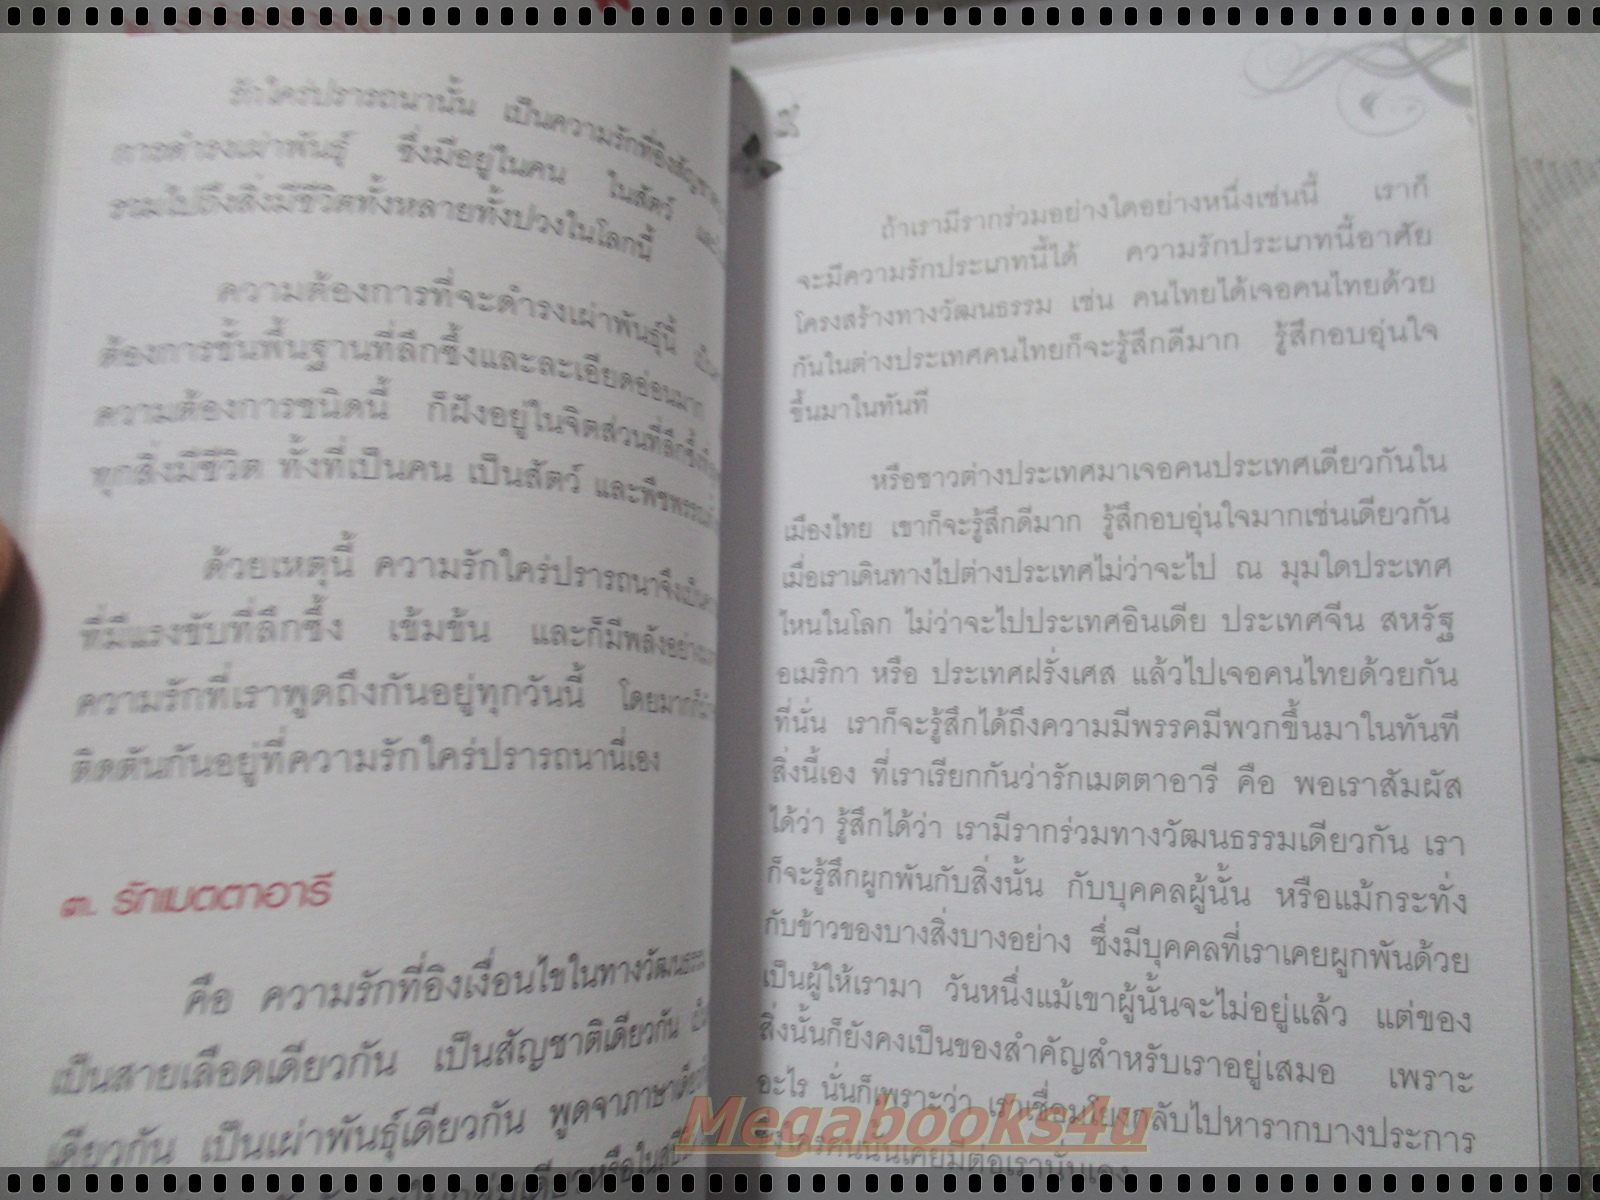 รักใคร่ปรารถนานั้น เป็นความรักที่อิงสัญชา
การดำรงเผ่าพันธุ์ ซึ่งมีอยู่ในคน ในสัตว์
รวมไปถึงสิ่งมีชีวิตทั้งหลายทั้งปวงในโลกนี้
ความต้องการที่จะดำรงเผ่าพันธุ์นี้
ต้องการขั้นพื้นฐานที่ลึกซึ้งและละเอียดอ่อนมาก
ความต้องการชนิดนี้ ก็ฝังอยู่ในจิตส่วนที่ลึกซึ้ง
ทุกสิ่งมีชีวิต ทั้งที่เป็นคน เป็นสัตว์ และพืชพรรณ
ด้วยเหตุนี้ ความรักใคร่ปรารถนาจึงเป็น
ที่มีแรงขับที่ลึกซึ้ง เข้มข้น และก็มีพลังอย่าง
ความรักที่เราพูดถึงกันอยู่ทุกวันนี้ โดยมาก
ติดตันกันอยู่ที่ความรักใคร่ปรารถนานี่เอง
๓. รักเมตตาอารี
คือ ความรักที่อิงเงื่อนไขในทางวัฒนธรร
เป็นสายเลือดเดียวกัน เป็นสัญชาติเดียวกัน
เดียวกัน เป็นเผ่าพันธุ์เดียวกัน พูดจาภาษาเดียวกั
ถ้าเรามีรากร่วมอย่างใดอย่างหนึ่งเช่นนี้ เราก็
จะมีความรักประเภทนี้ได้ ความรักประเภทนี้อาศัย
โครงสร้างทางวัฒนธรรม เช่น คนไทยได้เจอคนไทยด้วย
กันในต่างประเทศคนไทยก็จะรู้สึกดีมาก รู้สึกอบอุ่นใจ
ขึ้นมาในทันที
หรือชาวต่างประเทศมาเจอคนประเทศเดียวกันใน
เมืองไทย เขาก็จะรู้สึกดีมาก รู้สึกอบอุ่นใจมากเช่นเดียวกัน
เมื่อเราเดินทางไปต่างประเทศไม่ว่าจะไป ณ มุมใดประเทศ
ไหนในโลก ไม่ว่าจะไปประเทศอินเดีย ประเทศจีน สหรัฐ
อเมริกา หรือ ประเทศฝรั่งเศส แล้วไปเจอคนไทยด้วยกัน
ที่นั่น เราก็จะรู้สึกได้ถึงความมีพรรคมีพวกขึ้นมาในทันที
สิ่งนี้เอง ที่เราเรียกกันว่ารักเมตตาอารี คือ พอเราสัมผัส
ได้ว่า รู้สึกได้ว่า เรามีรากร่วมทางวัฒนธรรมเดียวกัน เรา
ก็จะรู้สึกผูกพันกับสิ่งนั้น กับบุคคลผู้นั้น หรือแม้กระทั่ง
กับข้าวของบางสิ่งบางอย่าง ซึ่งมีบุคคลที่เราเคยผูกพันด้วย
เป็นผู้ให้เรามา วันหนึ่งแม้เขาผู้นั้นจะไม่อยู่แล้ว แต่ของ
สิ่งนั้นก็ยังคงเป็นของสำคัญสำหรับเราอยู่เสมอ เพราะ
อะไร นั่นก็เพราะว่า เราเชื่อมโยงกลับไปหารากบางประการ
Megabooks4u